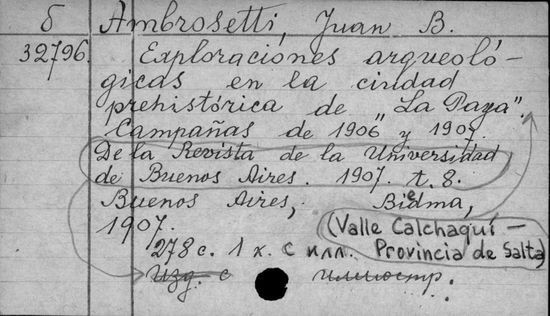 б Ambrosetti, Juan B.
32796. Exploraciones arqueoló-
gicas en la ciudad
prehistórica de "La Paya".
Campañas de 1906 y 1907.
De la Revista de la Universidad
de Buenos Aires. 1907. t. 8.
Buenos Aires, Biedma,
1907.
(Valle Calchaquí –
Provincia de Salta)
278 с. 1 к. с илл.
Изд. с иллюстр.